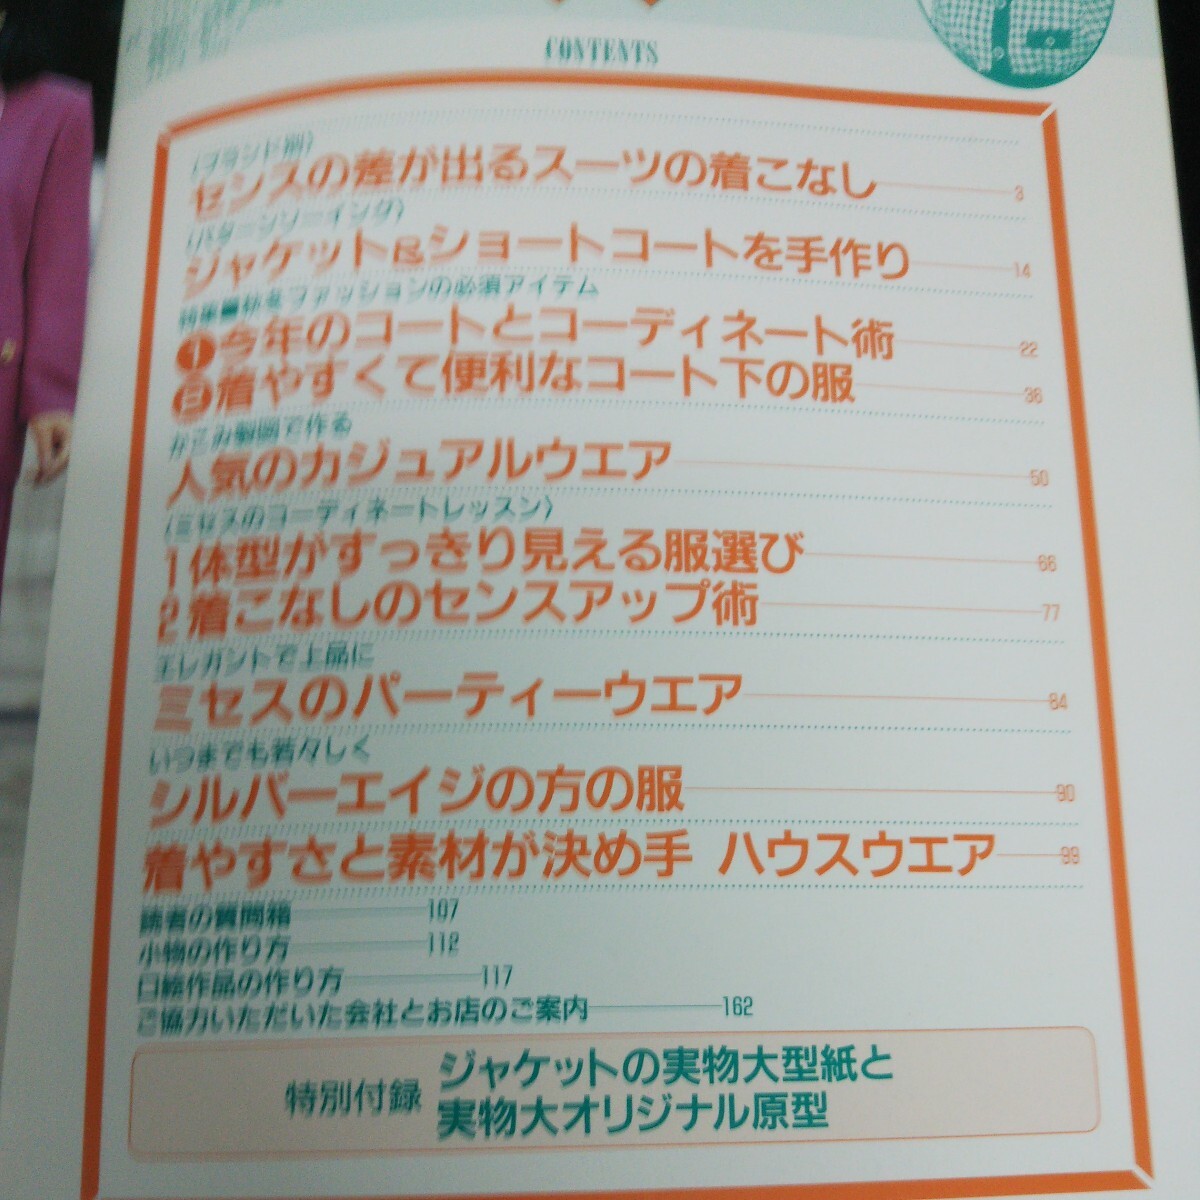 CONTENTS
〈ブランド別〉
センスの差が出るスーツの着こなし 3
〈パターンソーイング〉
ジャケット&ショートコートを手作り 14
特集■秋冬ファッションの必須アイテム
1 今年のコートとコーディネート術 22
2 着やすくて便利なコート下の服 36
かこみ製図で作る
人気のカジュアルウエア 50
〈ミセスのコーディネートレッスン〉
1 体型がすっきり見える服選び 66
2 着こなしのセンスアップ術 77
エレガントで上品に
ミセスのパーティーウエア 84
いつまでも若々しく
シルバーエイジの方の服 90
着やすさと素材が決め手 ハウスウエア 99
読者の質問箱 107
小物の作り方 112
口絵作品の作り方 117
ご協力いただいた会社とお店のご案内 162
特別付録
ジャケットの実物大型紙と
実物大オリジナル原型